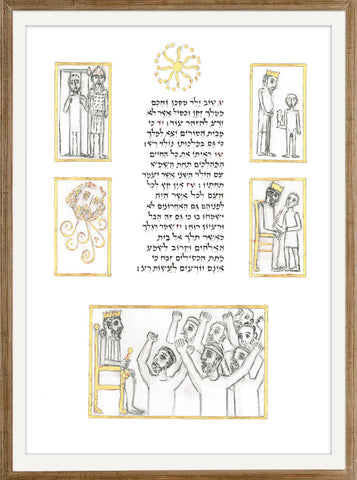 יג טוב ילד מסכן וחכם
ממלך זקן וכסיל אשר לא
ידע להזהר עוד: יד כי
מבית הסורים יצא למלך
כי גם במלכותו נולד רש:
טו ראיתי את כל החיים
המהלכים תחת השמש
עם הילד השני אשר יעמד
תחתיו: טז אין קץ לכל
העם לכל אשר היה
לפניהם גם האחרונים לא
ישמחו בו כי גם זה הבל
ורעיון רוח: יז שמר רגלך
כאשר תלך אל בית
האלהים וקרוב לשמע
מתת הכסילים זבח כי
אינם יודעים לעשות רע: